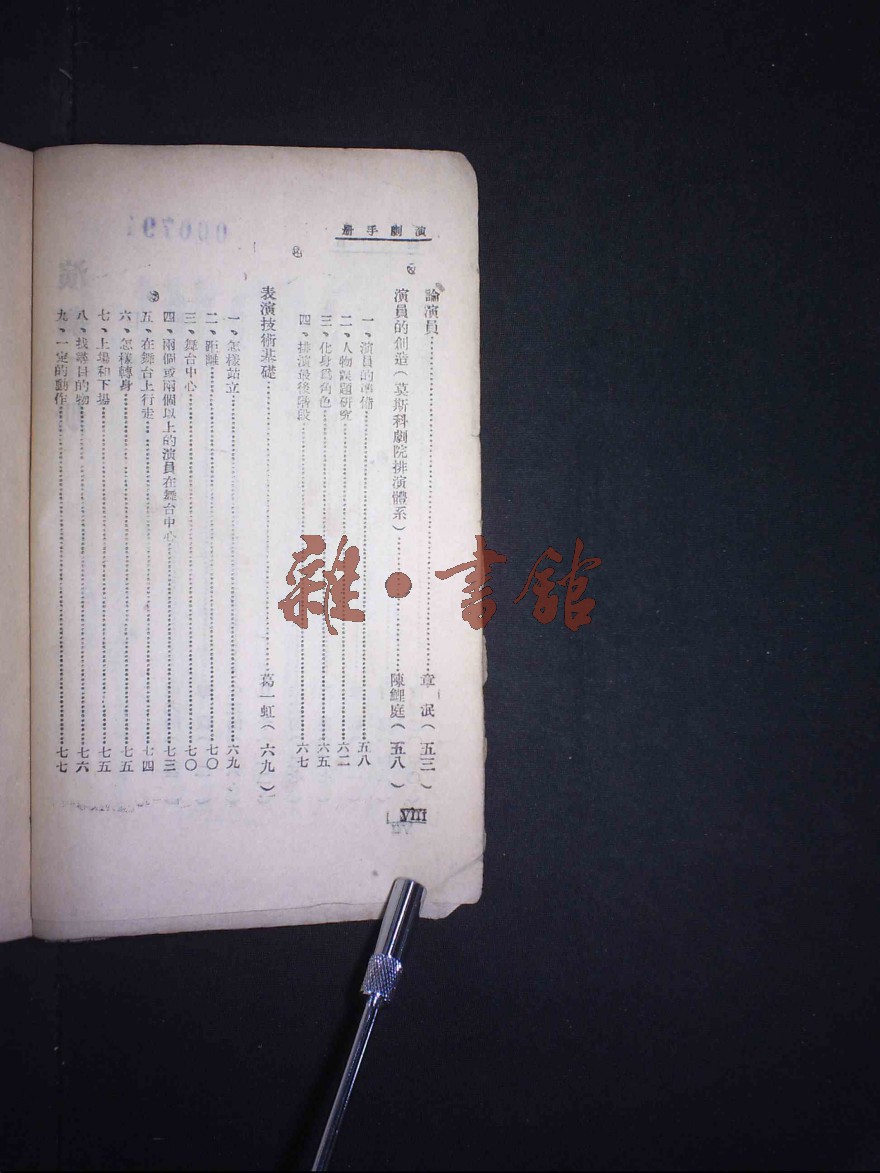 演劇手册
論演員……章泯（五三）
演員的創造（莫斯科劇院排演體系）……陳鯉庭（五八）
一、演員的準備……五八
二、人物課題研究……六二
三、化身爲角色……六五
四、排演最後階段……六七
表演技術基礎……葛一虹（六九）
一、怎樣站立……六九
二、距離……七〇
三、舞台中心……七〇
四、兩個或兩個以上的演員在舞台中心……七三
五、在舞台上行走……七四
六、怎樣轉身……七五
七、上場和下場……七五
八、找尋目的物……七六
九、一定的動作……七七
viii
雜·書館